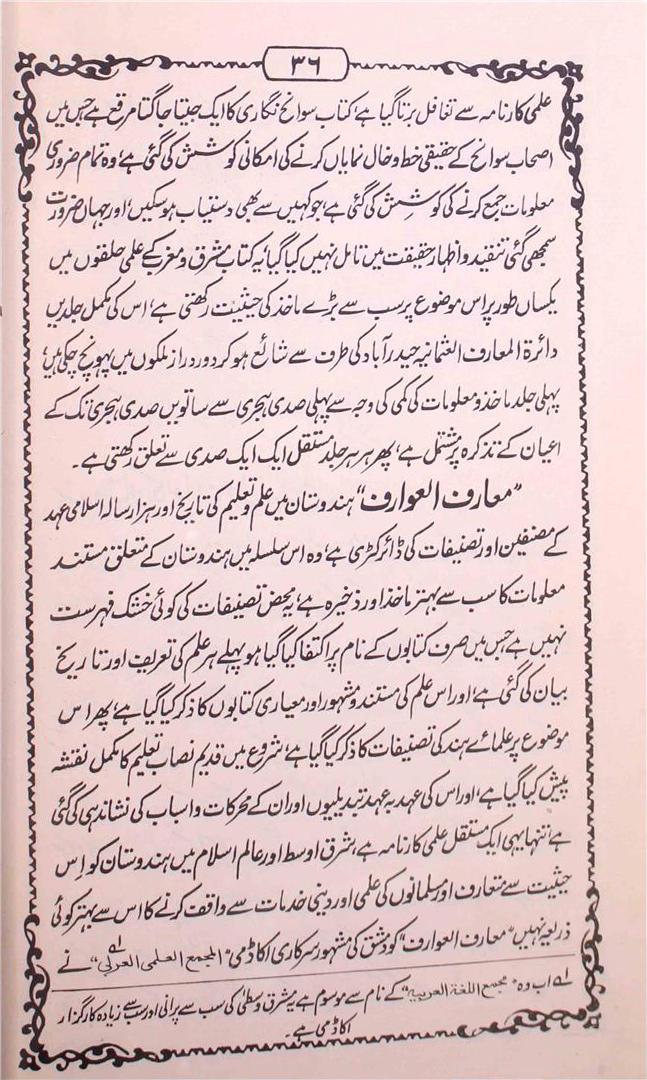 ۳۶
علمی کارنامہ سے تغافل برتا گیا ہے، کتاب سوانح نگاری کا ایک جیتا جاگتا مرقع ہے جس میں
اصحاب سوانح کے حقیقی خط و خال نمایاں کرنے کی امکانی کوشش کی گئی ہے، وہ تمام ضروری
معلومات جمع کرنے کی کوشش کی گئی ہے، جو کہیں سے بھی دستیاب ہوسکیں، اور جہاں ضرورت
سمجھی گئی تنقید و اظہار حقیقت میں تامل نہیں کیا گیا، یہ کتاب مشرق و مغرب کے علمی حلقوں میں
یکساں طور پر اس موضوع پر سب سے بڑے ماخذ کی حیثیت رکھتی ہے، اس کی مکمل جلدیں
دائرۃ المعارف العثمانیہ حیدر آباد کی طرف سے شائع ہو کر دور دراز ملکوں میں پہونچ چکی ہیں،
پہلی جلد ماخذ و معلومات کی کمی کی وجہ سے پہلی صدی ہجری سے ساتویں صدی ہجری تک کے
اعیان کے تذکرہ پر مشتمل ہے، پھر ہر ہر جلد مستقل ایک ایک صدی سے تعلق رکھتی ہے۔
"معارف العوارف" ہندوستان میں علم و تعلیم کی تاریخ اور ہزار سالہ اسلامی عہد
کے مصنفین اور تصنیفات کی ڈائرکٹری ہے، وہ اس سلسلہ میں ہندوستان کے متعلق مستند
معلومات کا سب سے بہتر ماخذ اور ذخیرہ ہے، یہ محض تصنیفات کی کوئی خشک فہرست
نہیں ہے جس میں صرف کتابوں کے نام پر اکتفا کیا گیا ہو پہلے ہر علم کی تعریف اور تاریخ
بیان کی گئی ہے، اور اس علم کی مستند و مشہور اور معیاری کتابوں کا ذکر کیا گیا ہے، پھر اس
موضوع پر علمائے ہند کی تصنیفات کا ذکر کیا گیا ہے، شروع میں قدیم نصاب تعلیم کا مکمل نقشہ
پیش کیا گیا ہے، اور اس کی عہد بہ عہد تبدیلیوں اور ان کے محرکات و اسباب کی نشاندہی کی گئی
ہے، تنہا یہی ایک مستقل علمی کارنامہ ہے، شرق اوسط اور عالم اسلام میں ہندوستان کو اِس
حیثیت سے متعارف اور مسلمانوں کی علمی اور دینی خدمات سے واقف کرنے کا اس سے بہتر کوئی
ذریعہ نہیں "معارف العوارف" کو دمشق کی مشہور سرکاری اکاڈمی "المجمع العلمی العربی" لہ نے
لہ اب وہ "مجمع اللغة العربیہ" کے نام سے موسوم ہے مشرق وسطیٰ کی سب سے پرانی اور سب سے زیادہ کارگزار
اکاڈمی ہے۔